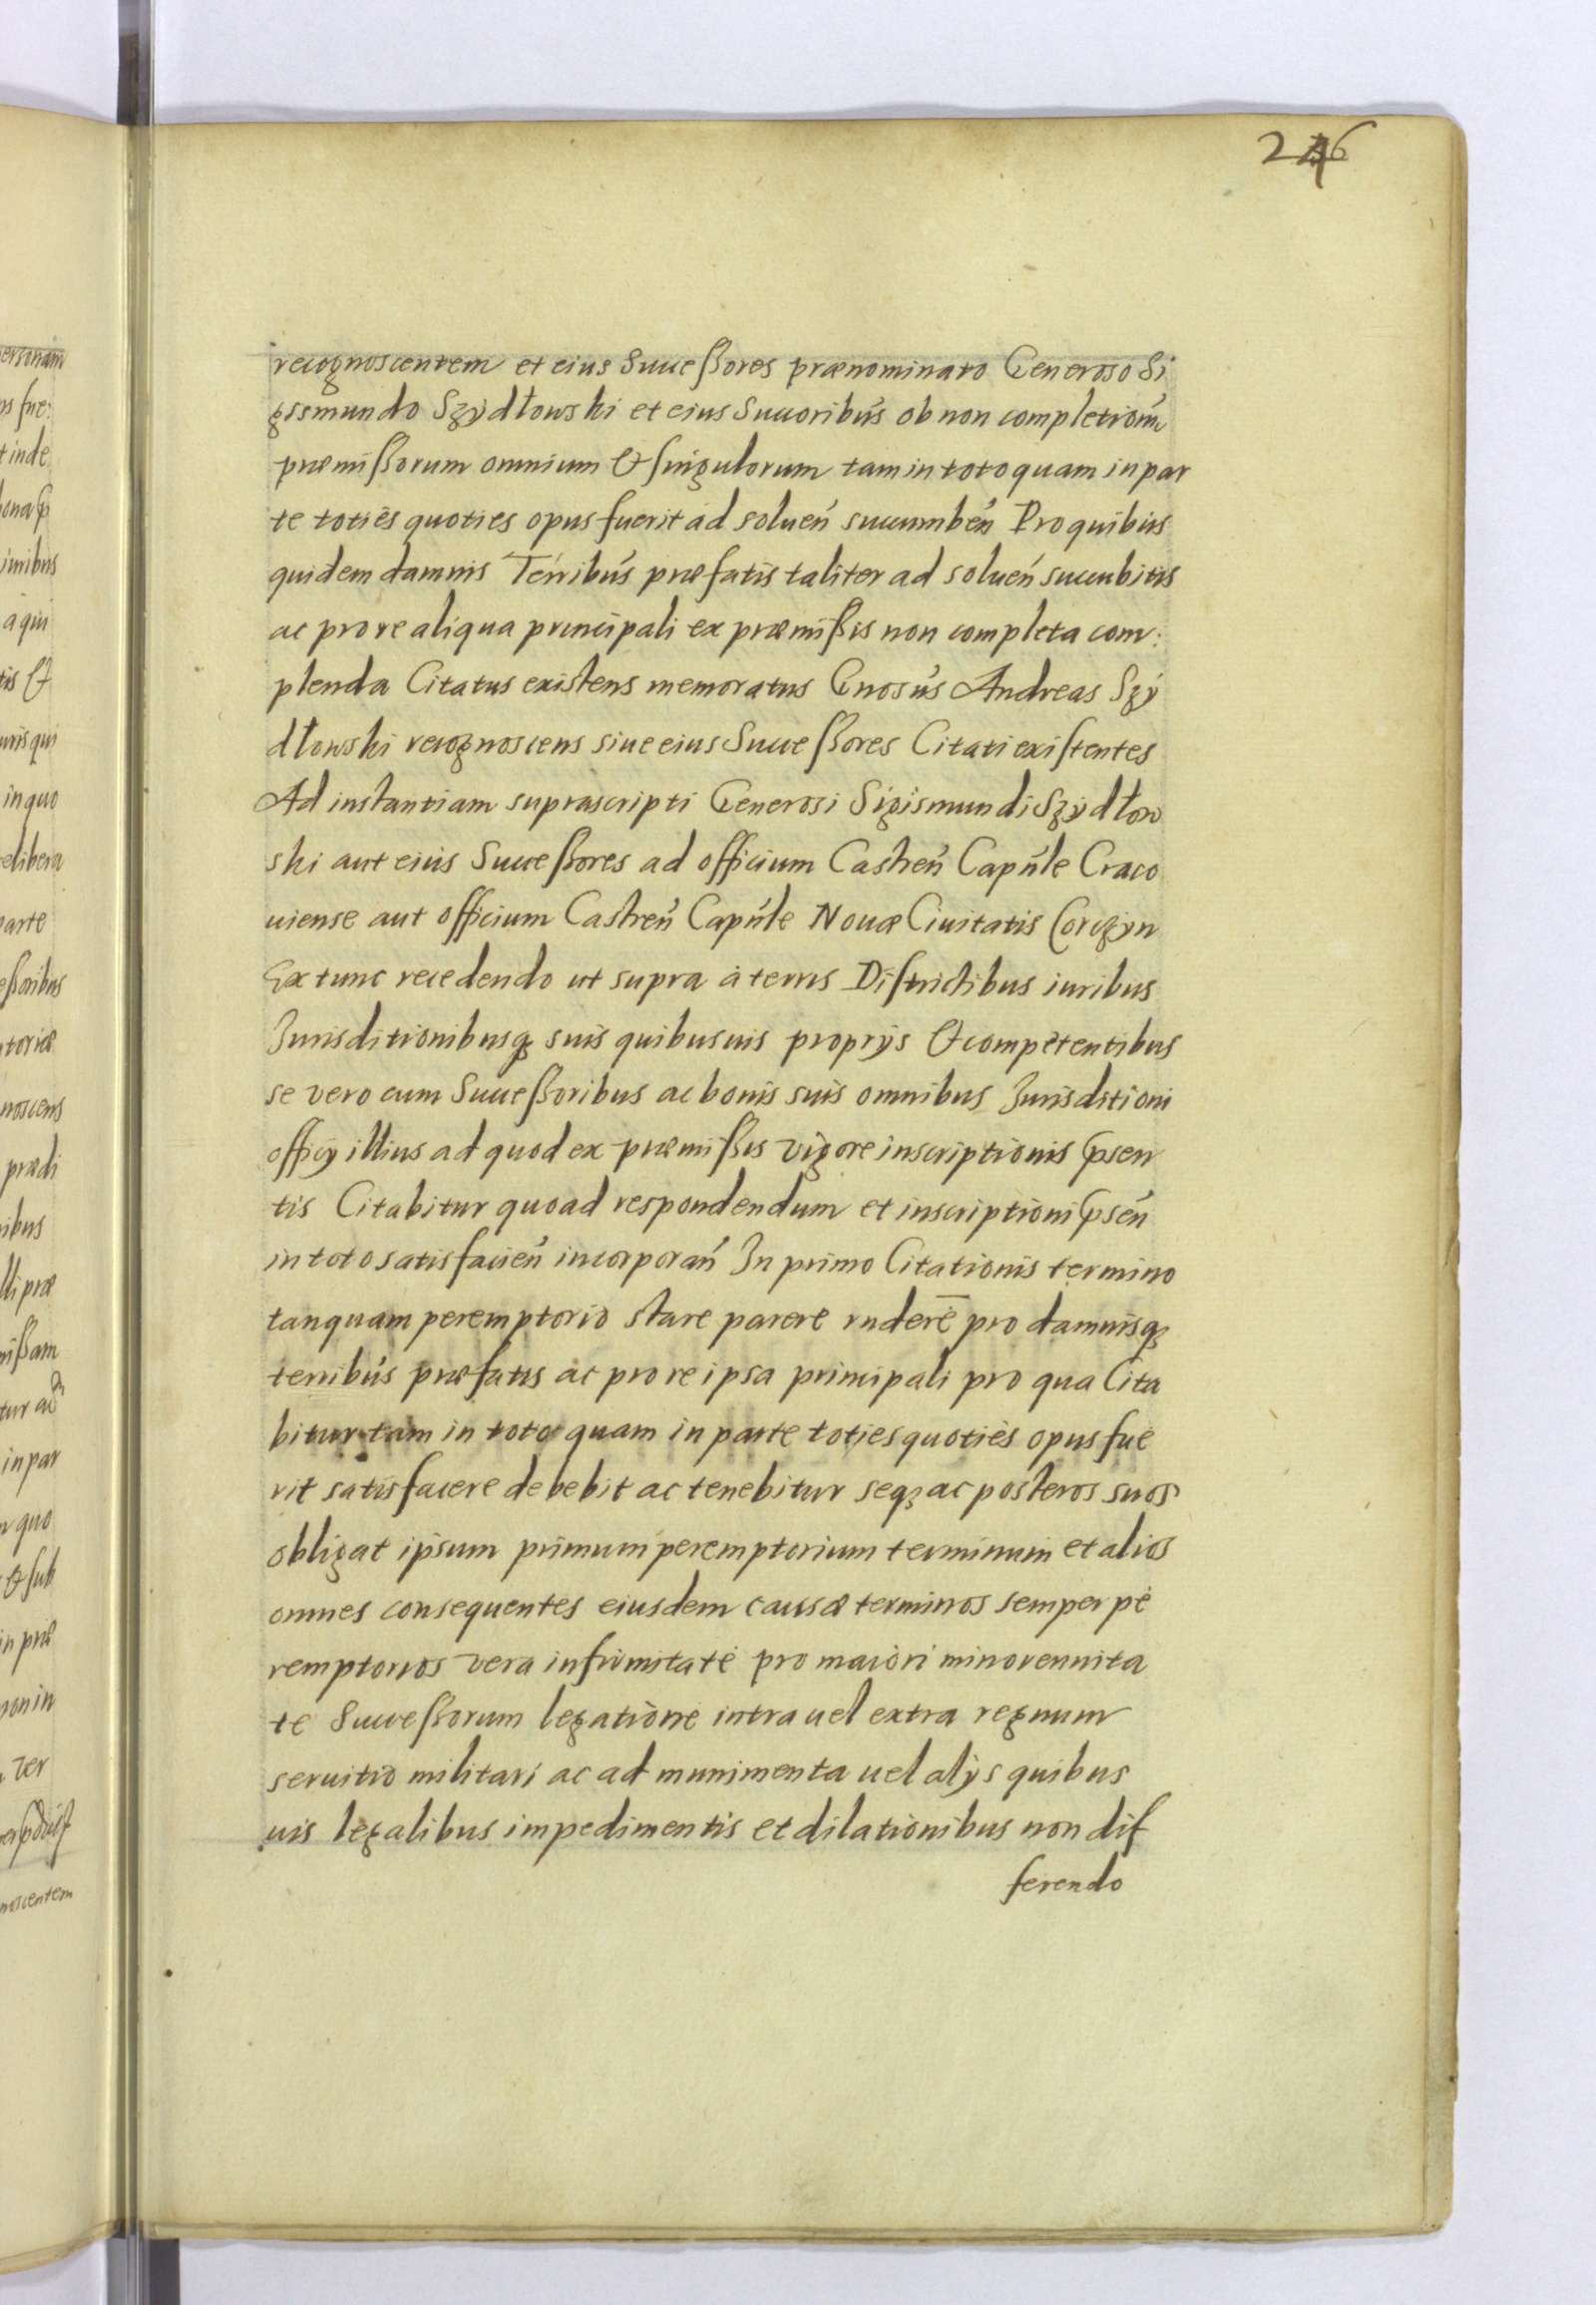 246
recognoscentem et eius Successores prænominato Generoso Si
gismundo Szÿdłowski et eius Succoribús ob non completioń
præmissorum omnium & singulorum tam in toto quam in par
te toties quoties opus fuerit ad solueń succumbeń Pro quibus
quidem damnis Terribús præfatis taliter ad solueń succubitis
ac pro re aliqua principali ex præmissis non completa com:
plenda Citatus existens memoratus Gnosús Andreas Szÿ
dłowski recognoscens siue eius Successores Citati existentes
Ad instantiam suprascripti Generosi Sigismundi Szÿdłow
ski aut eius Successores ad officium Castreń Capńle Craco
uiense aut officium Castreń Capńle Nouæ Ciuitatis Corczyn
Ex tunc recedendo ut supra à terris Districtibus iuribus
Jurisditionibusq₃ suis quibusuis proprijs & competentibus
se vero cum Successoribus ac bonis suis omnibus Jurisditioni
officij illius ad quod ex præmissis vigore inscriptionis p̃sen
tis Citabitur quoad respondendum et inscriptioni p̃seń
in toto satisfacień incorporań In primo Citationis termino
tanquam peremptorio stare parere rnderē pro damnisq₃
terribús præfatis ac pro re ipsa principali pro qua Cita
bitur tam in toto quam in parte toties quoties opus fue
rit satisfacere debebit ac tenebitur seq₃ ac posteros suos
obligat ipsum primum peremptorium terminum et alios
omnes consequentes eiusdem caussæ terminos semper pe
remptorios vera infirmitate pro maiori minorennita
te Successorum legatione intra uel extra regnum
seruitio militari ac ad munimenta uel alÿs quibus
uis legalibus impedimentis et dilationibus non dif
ferendo